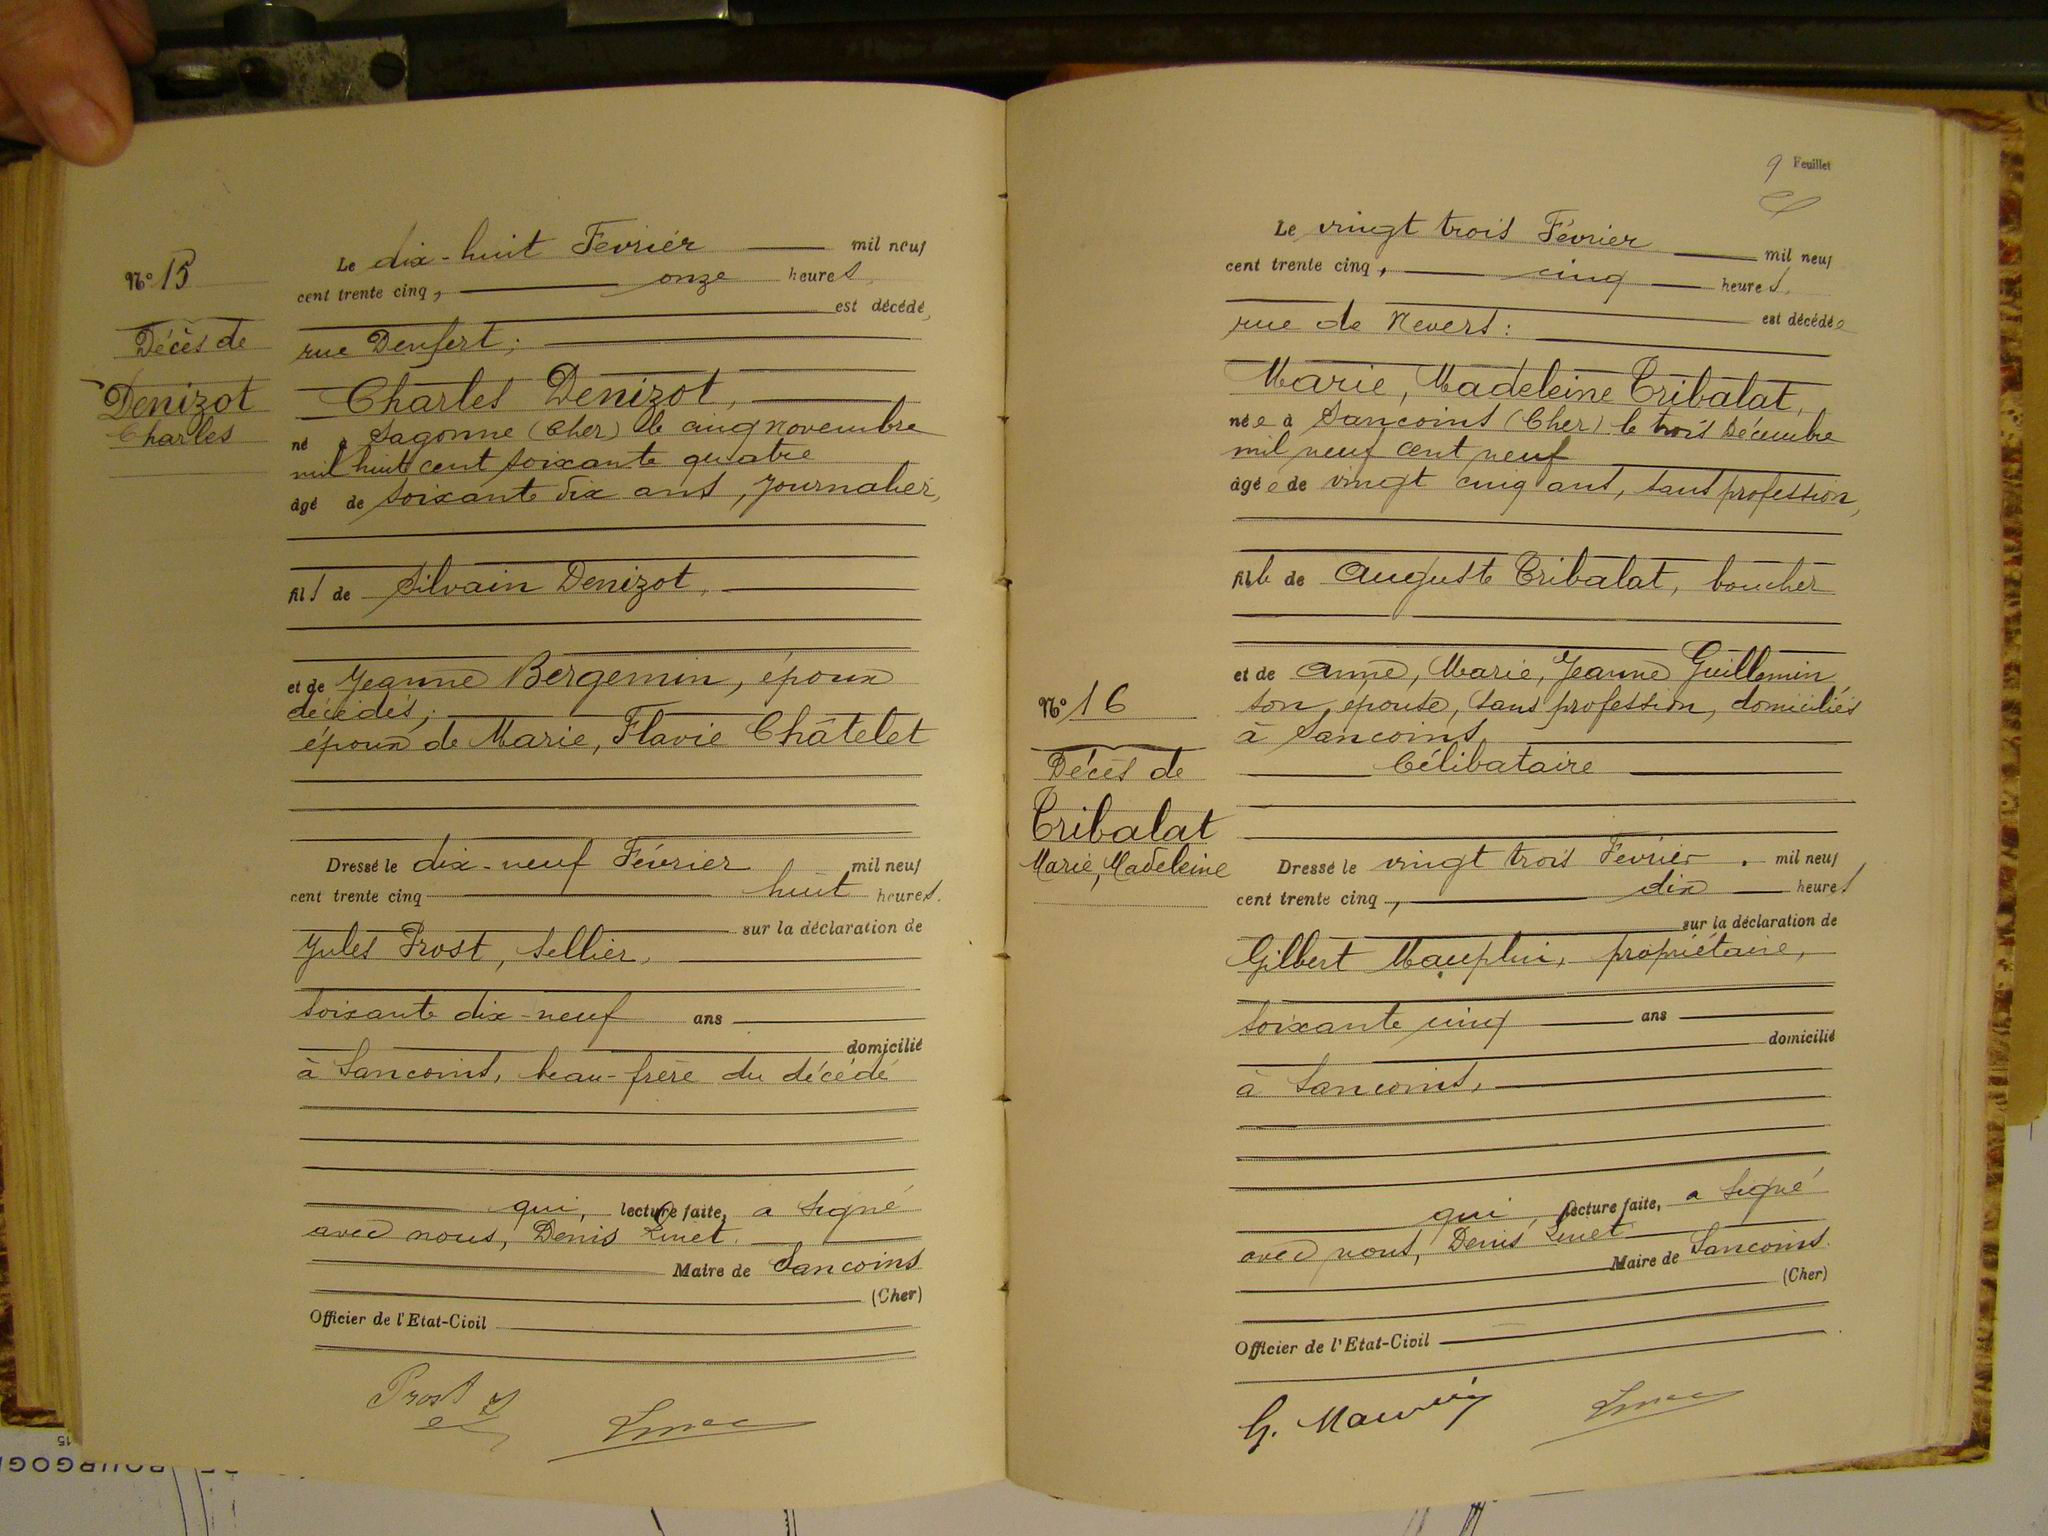 N° 15
Décès de
Denizot
Charles
Le dix-huit Fevrier mil neuf
cent trente cinq, onze heures
est décédé,
rue Denfert;
Charles Denizot,
né à Sagonne (Cher) le cinq Novembre
mil huit cent soixante quatre
âgé de soixante dix ans, journalier,
fils de Silvain Denizot,
et de Jeanne Bergemin, époux
décédés;
époux de Marie, Flavie Châtelet
Dressé le dix-neuf Février mil neuf
cent trente cinq huit heures.
sur la déclaration de
Jules Prost, sellier,
soixante dix-neuf ans
domicilié
à Sancoins, beau-frère du décédé
qui, lecture faite, a signé
avec nous, Denis
Maire de Sancoins
(Cher)
Officier de l'Etat-Civil
Prost
9 Feuillet
N° 16
Décès de
Tribalat
Marie, Madeleine
Le vingt trois Février mil neuf
cent trente cinq, cinq heures.
est décédée
rue de Nevers:
Marie, Madeleine Tribalat,
née à Sancoins (Cher) le trois Décembre
mil neuf cent neuf
âgée de vingt cinq ans, sans profession,
fille de Auguste Tribalat, boucher
et de Anne, Marie, Jeanne Guillemin,
son épouse, sans profession, domiciliés
à Sancoins
Célibataire
Dressé le vingt trois Fevrier mil neuf
cent trente cinq, dix heures
sur la déclaration de
Gilbert propriétaire,
soixante cinq ans
domicilié
à Sancoins,
qui, lecture faite, a signé
avec nous, Denis
Maire de Sancoins.
(Cher)
Officier de l'Etat-Civil
G.